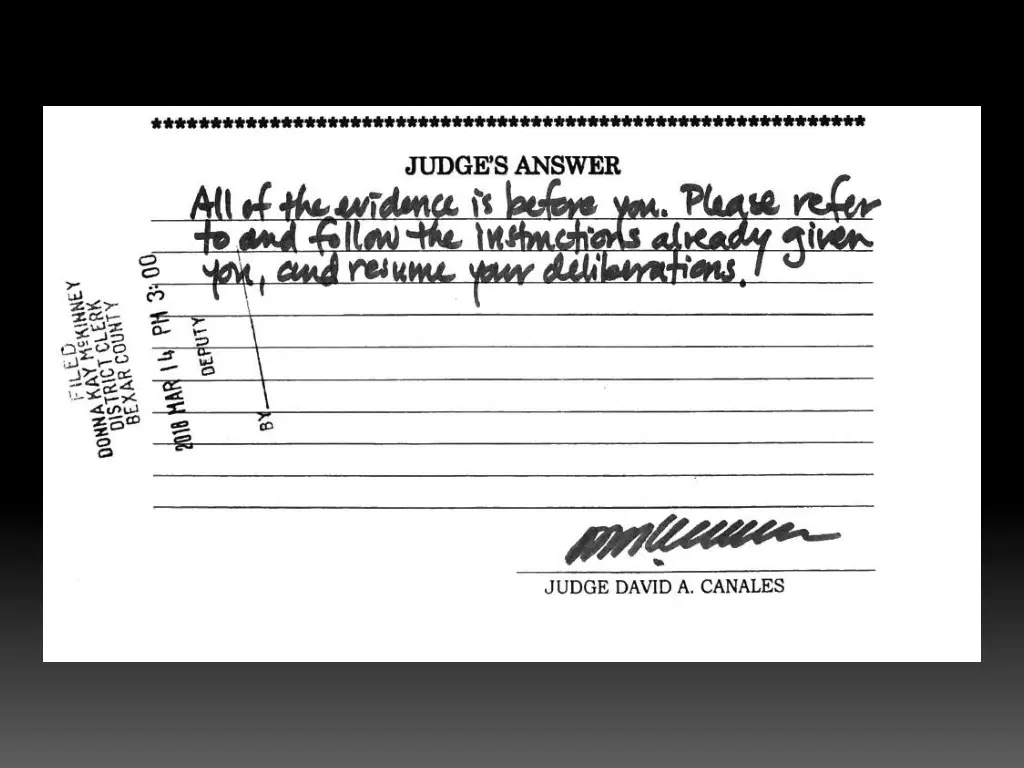 ************************************************************
JUDGE'S ANSWER
All of the evidence is before you. Please refer
to and follow the instructions already given
you, and resume your deliberations.
FILED
DONNA KAY McKINNEY
DISTRICT CLERK
BEXAR COUNTY
2018 MAR 14 PM 3:00
DEPUTY
BY
JUDGE DAVID A. CANALES